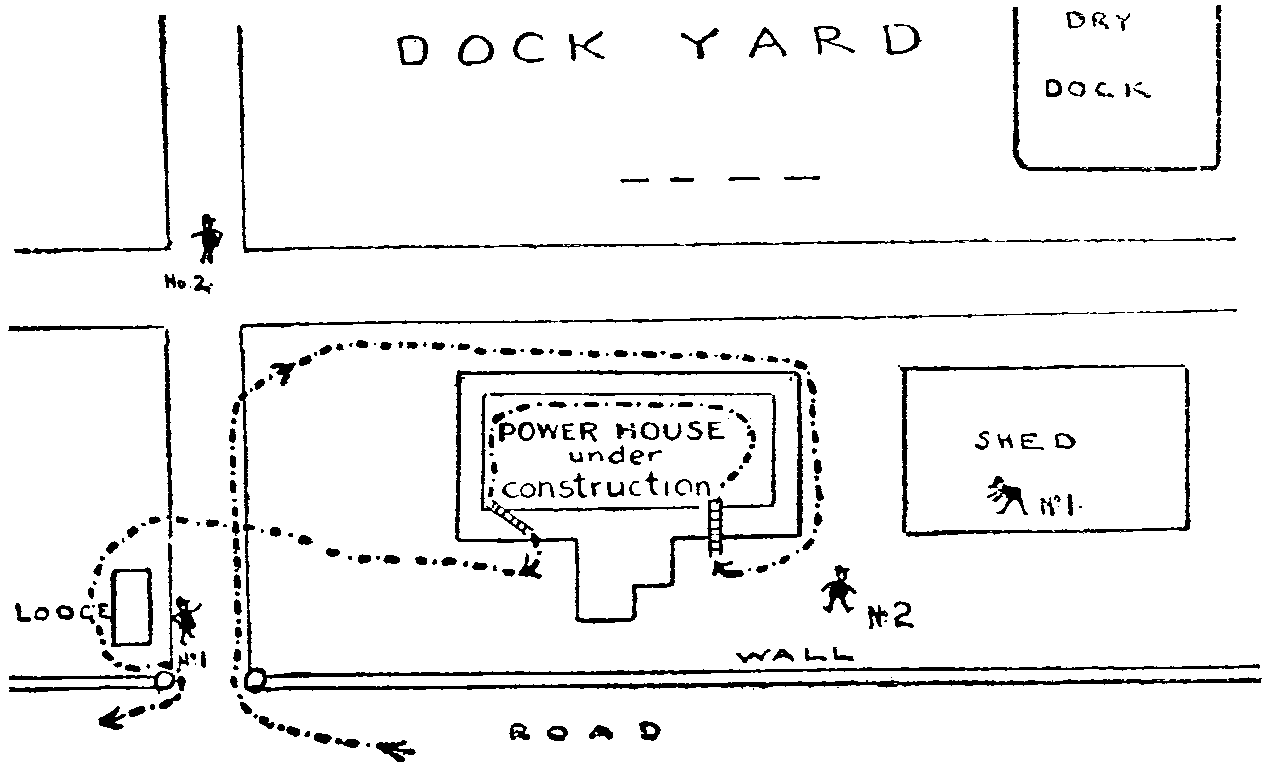 DOCK YARD
DRY
DOCK
No. 2.
POWER HOUSE
under
construction
SHED
No 1.
LODGE
No 1
No 2
WALL
ROAD